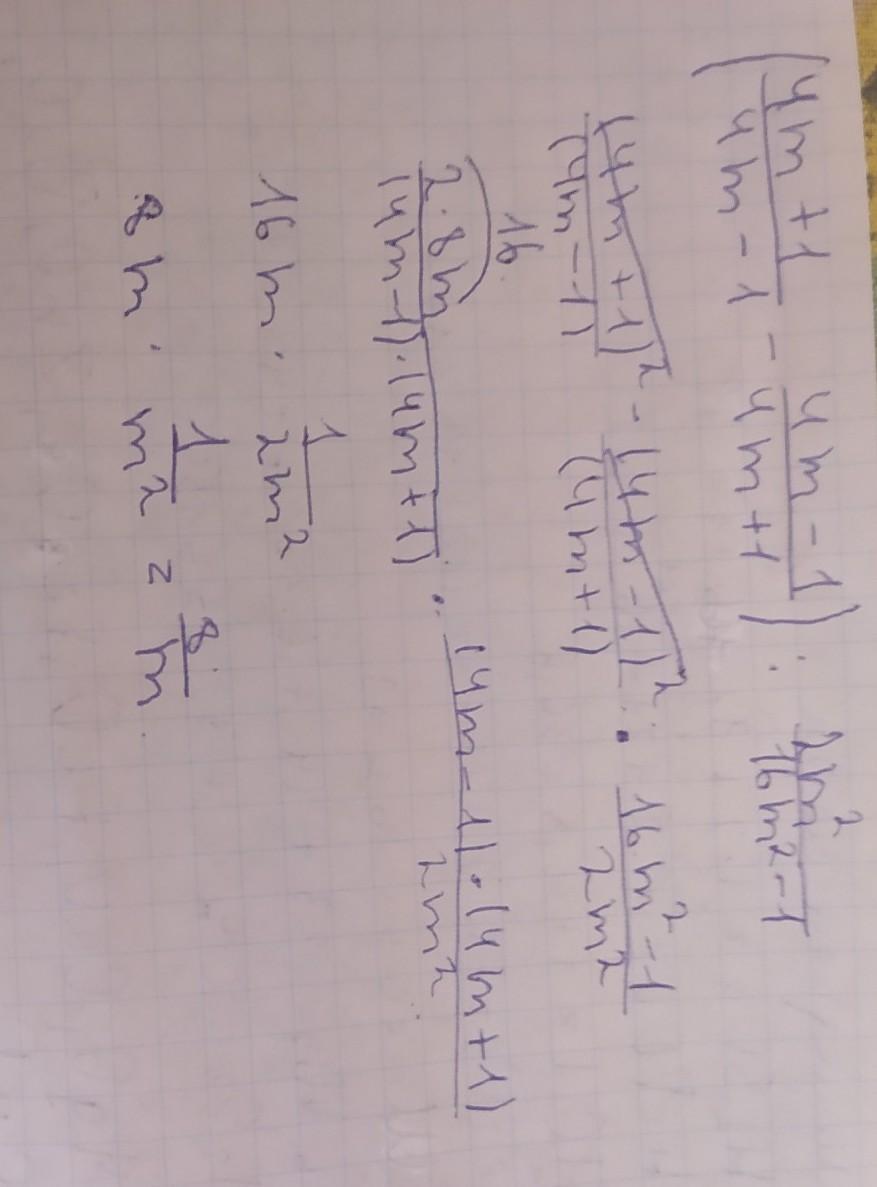 (4m+1/4m-1 - 4m-1/4m+1) : 2m²/16m²-1
(4m+1)²/(4m-1) - (4m-1)²/(4m+1) · 16m²-1/2m²
16
2·8m/(4m-1)·(4m+1) · (4m-1)·(4m+1)/2m²
16m · 1/2m²
8m · 1/m² = 8/m